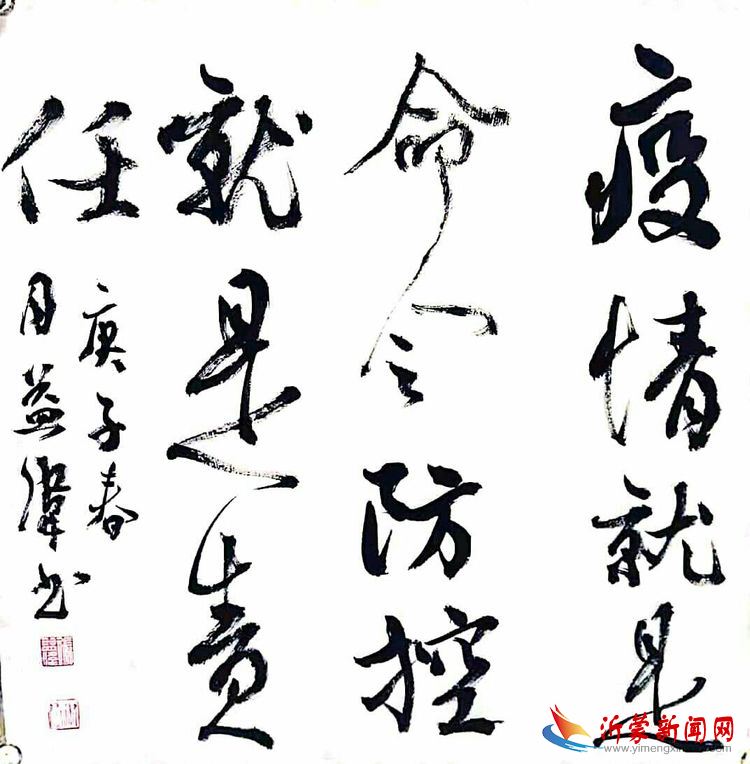 疫情就是
命令防控
就是责
任
庚子春
益书
沂蒙新闻网